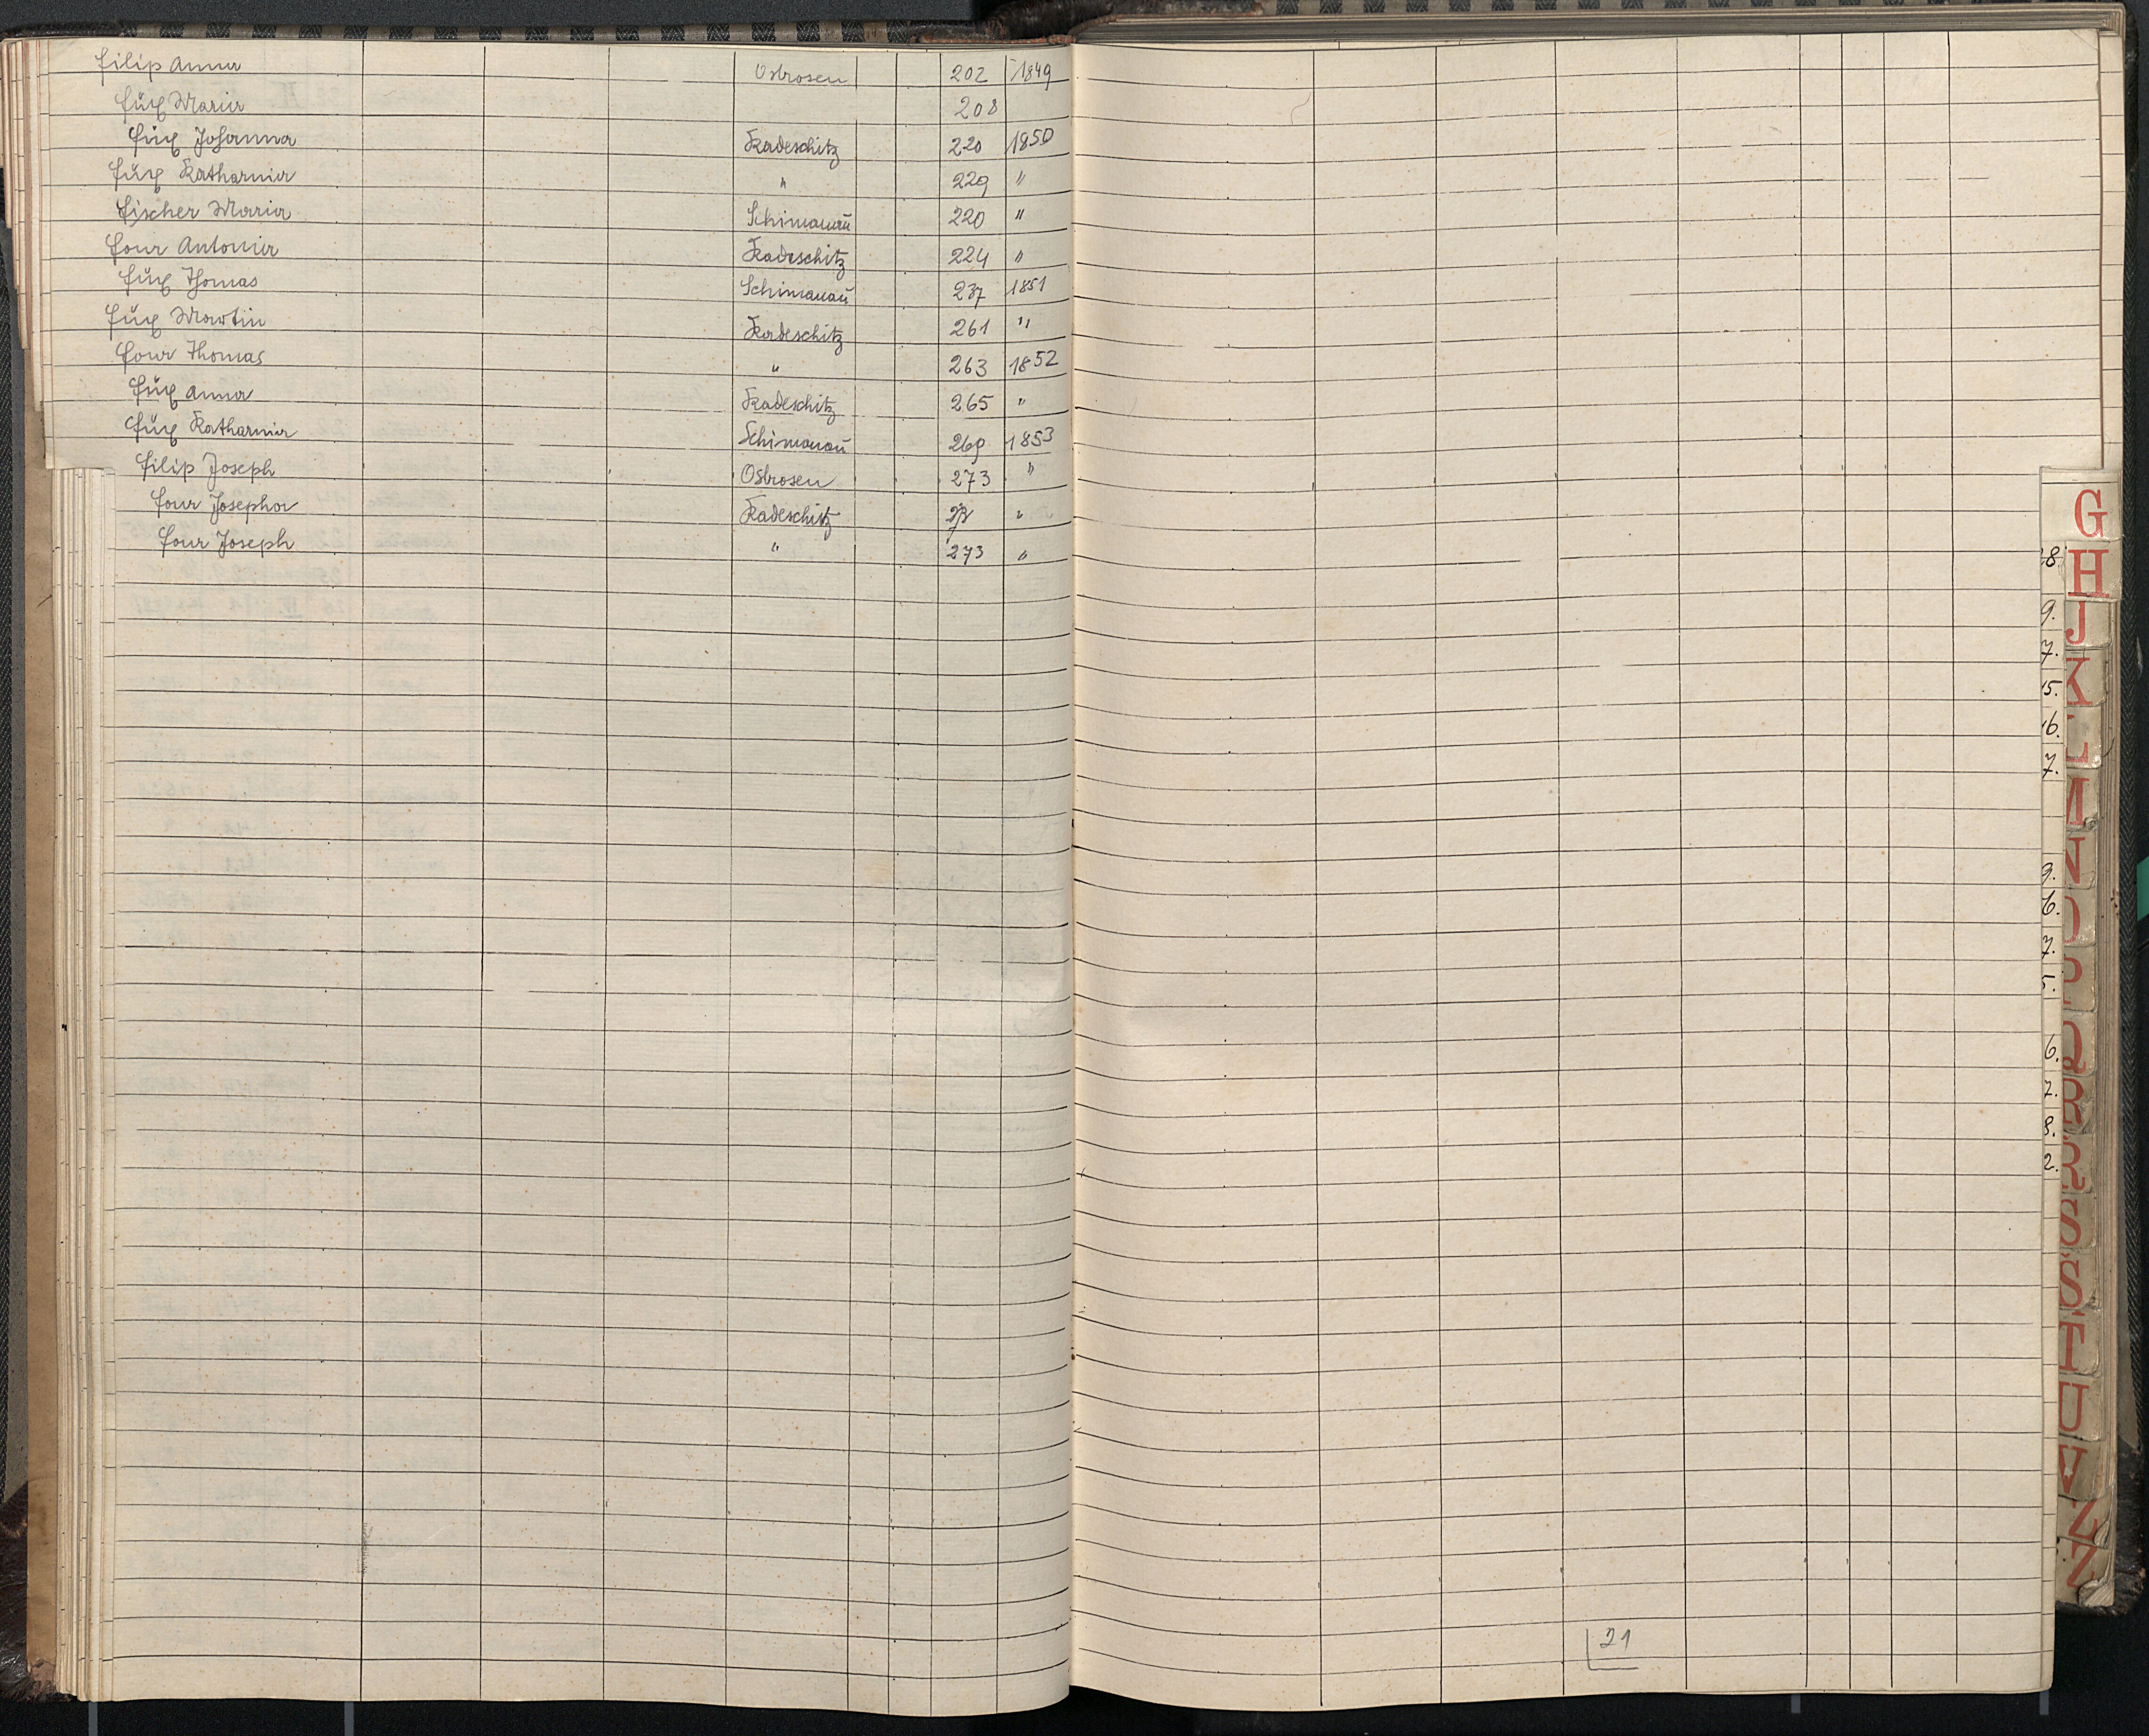 Filip Anna Ostrosen 202 1849
Füx Maria 208
Füx Johanna Kadeschitz 220 1850
Füx Katharina " 229 "
Fischer Maria Schimanau 220 "
Four Antonia Kadeschitz 224 "
Füx Thomas Schimanau 237 1851
Füx Martin Kadeschitz 261 "
Four Thomas " 263 1852
Füx Anna Kadeschitz 265 "
Füx Katharina Schimanau 269 1853
Filip Joseph Ostrosen 273 "
Four Josepha Kadeschitz "
Four Joseph " 273 "
G
H
J
K
L
M
N
O
P
Q
R
R
S
S
T
U
V
Z
Z
8.
9.
7.
15.
16.
7.
9.
6.
7.
5.
6.
7.
8.
2.
21